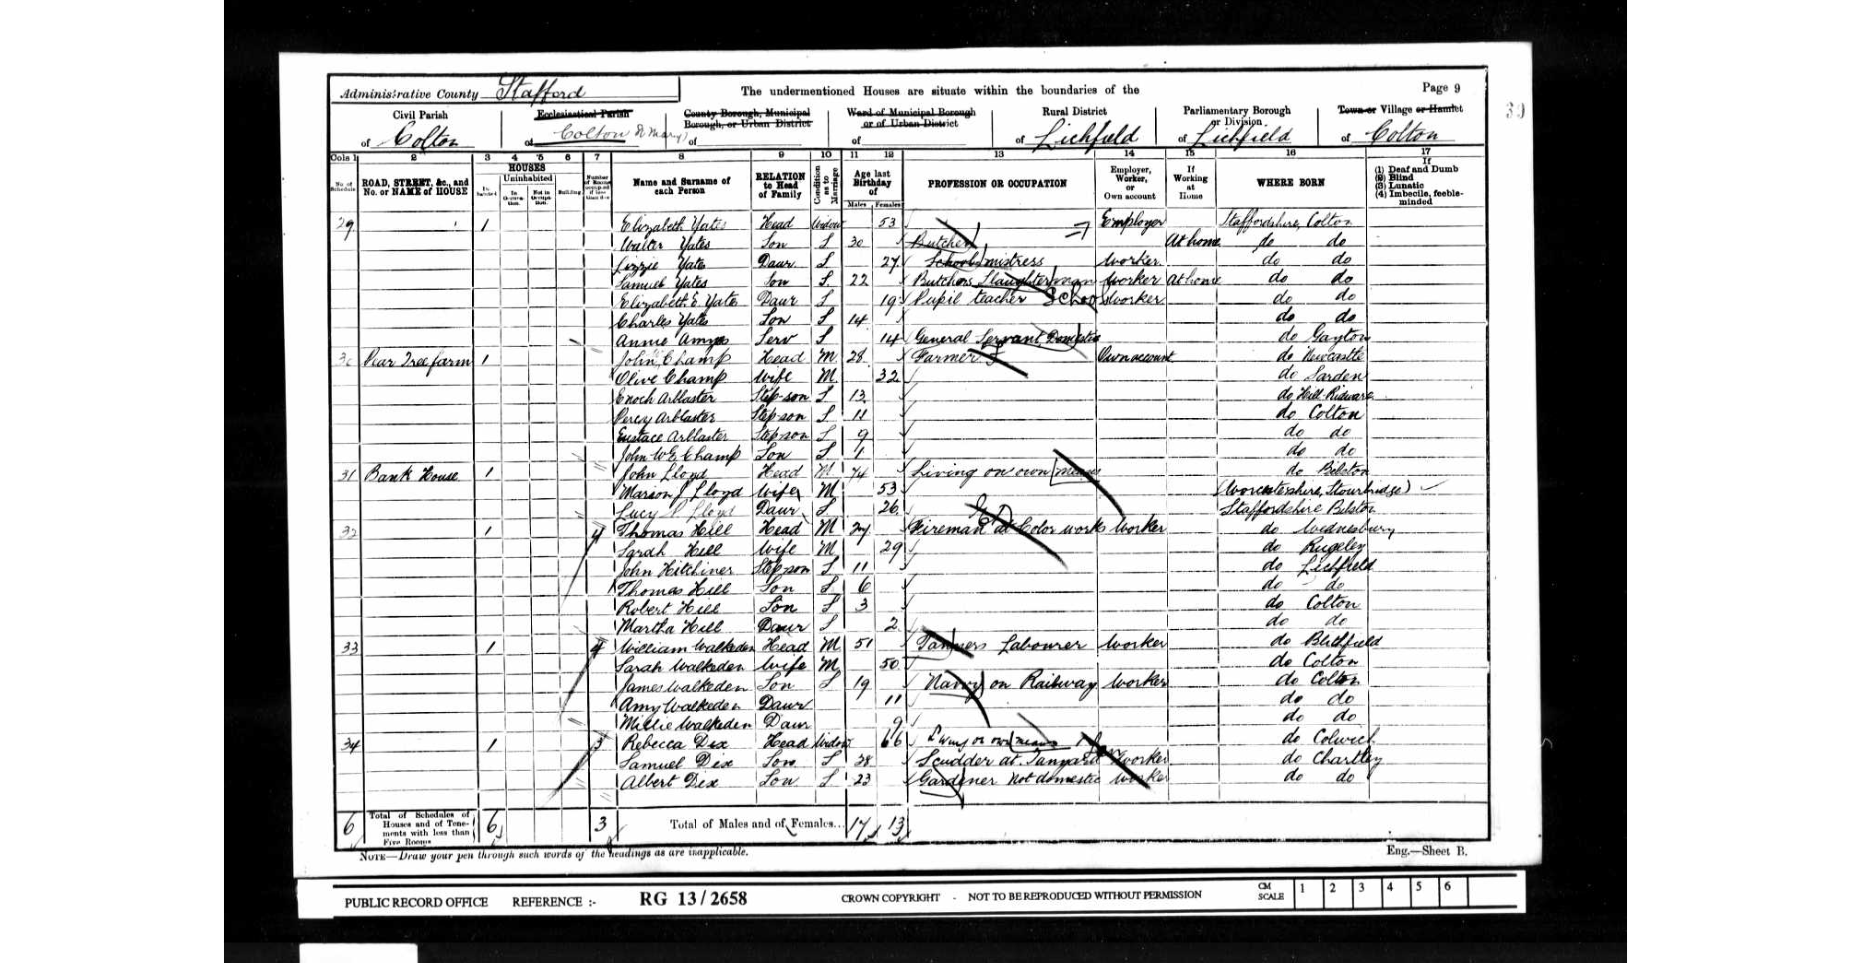 Administrative County Stafford
The undermentioned Houses are situate within the boundaries of the
Page 9
Civil Parish
of Colton
Ecclesiastical Parish
of Colton St Mary
County Borough, Municipal
Borough, or Urban District
of
Ward of Municipal Borough
or of Urban District
of
Rural District
of Lichfield
Parliamentary Borough
or Division
of Lichfield
Town or Village or Hamlet
of Colton
39
Cols 1 2 3 4 5 6 7 8 9 10 11 12 13 14 15 16 17
No. of Schedule
ROAD, STREET, &c., and No. or NAME of HOUSE
HOUSES
Inhabited
Uninhabited
In Occupation.
Not in Occupation.
Building
Name and Surname of each Person
RELATION to Head of Family
Condition as to Marriage
Age last Birthday of
Males Females
PROFESSION OR OCCUPATION
Employer, Worker, or Own account
If Working at Home
WHERE BORN
If
(1) Deaf and Dumb
(2) Blind
(3) Lunatic
(4) Imbecile, feeble-minded
29 1 Elizabeth Yates Head Widow 53 Employer Staffordshire, Colton
Walter Yates Son S 30 Butcher At home do do
Lizzie Yates Daur S 27 School mistress Worker do do
Samuel Yates Son S 22 Butchers Slaughterman Worker At home do do
Elizabeth E Yates Daur S 19 Pupil teacher School Worker do do
Charles Yates Son S 14 do do
Annie Serv S 14 General Servant Domestic do Gayton
30 Pear Tree farm 1 John Champ Head M 28 Farmer Own account do Newcastle
Olive Champ Wife M 32 do
Enoch Arblaster Step-son S 13 do Hill Ridware
Percy Arblaster Step son S 11 do Colton
Eustace Arblaster Step son S 9 do do
John W E Champ Son S 1 do do
31 Bank House 1 John Lloyd Head M 74 Living on own means do Bilston
Lloyd Wife M 53 (Worcestershire, Stourbridge)
Lucy Lloyd Daur S 26 Staffordshire Bilston
32 1 4 Thomas Hill Head M 27 Fireman at Color works Worker do Wednesbury
Sarah Hill Wife M 29 do Rugeley
John Hitchiner Stepson S 11 do Lichfield
Thomas Hill Son S 6 do do
Robert Hill Son S 3 do Colton
Martha Hill Daur S 2 do do
33 1 4 William Walkeden Head M 51 Tanners Labourer Worker do Blithfield
Sarah Walkeden Wife M 50 do Colton
James Walkeden Son S 19 Navvy on Railway Worker do Colton
Amy Walkeden Daur 11 do do
Millie Walkeden Daur 9 do do
34 1 3 Rebecca Dix Head Widow 66 Living on own means do Colwich
Samuel Dix Son S 28 Scudder at Tanyard Worker do Chartley
Albert Dix Son S 23 Gardener Not domestic Worker do do
6 Total of Schedules of Houses and of Tenements with less than Five Rooms 6 3 Total of Males and of Females... 17 13
NOTE—Draw your pen through such words of the headings as are inapplicable.
Eng.—Sheet B.
PUBLIC RECORD OFFICE REFERENCE :- RG 13/2658 CROWN COPYRIGHT - NOT TO BE REPRODUCED WITHOUT PERMISSION CM SCALE 1 2 3 4 5 6